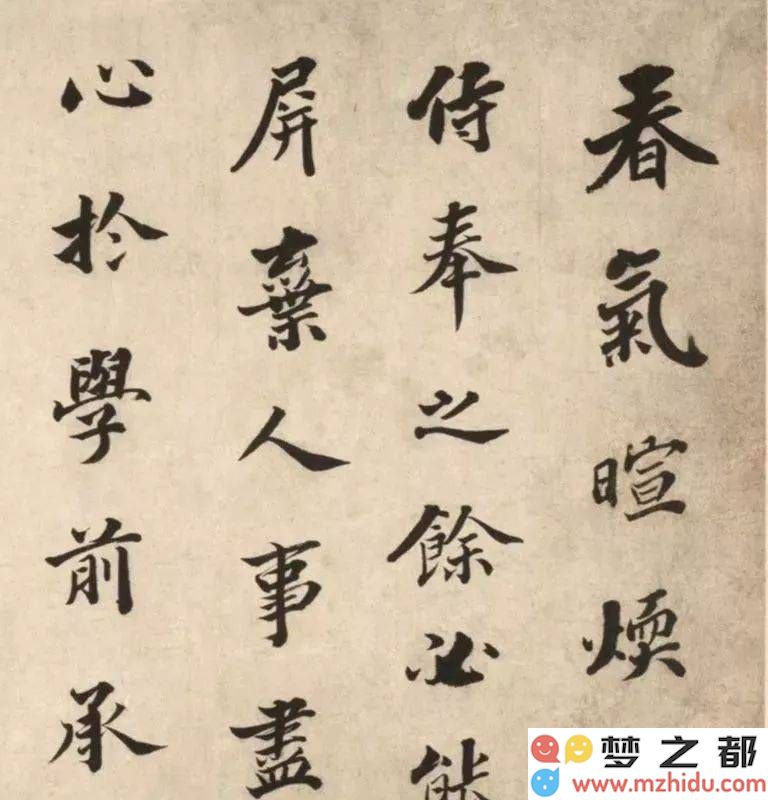 春氣暄煗
侍奉之餘必能
屏棄人事盡
心於學前承
梦之都
www.mzhidu.com